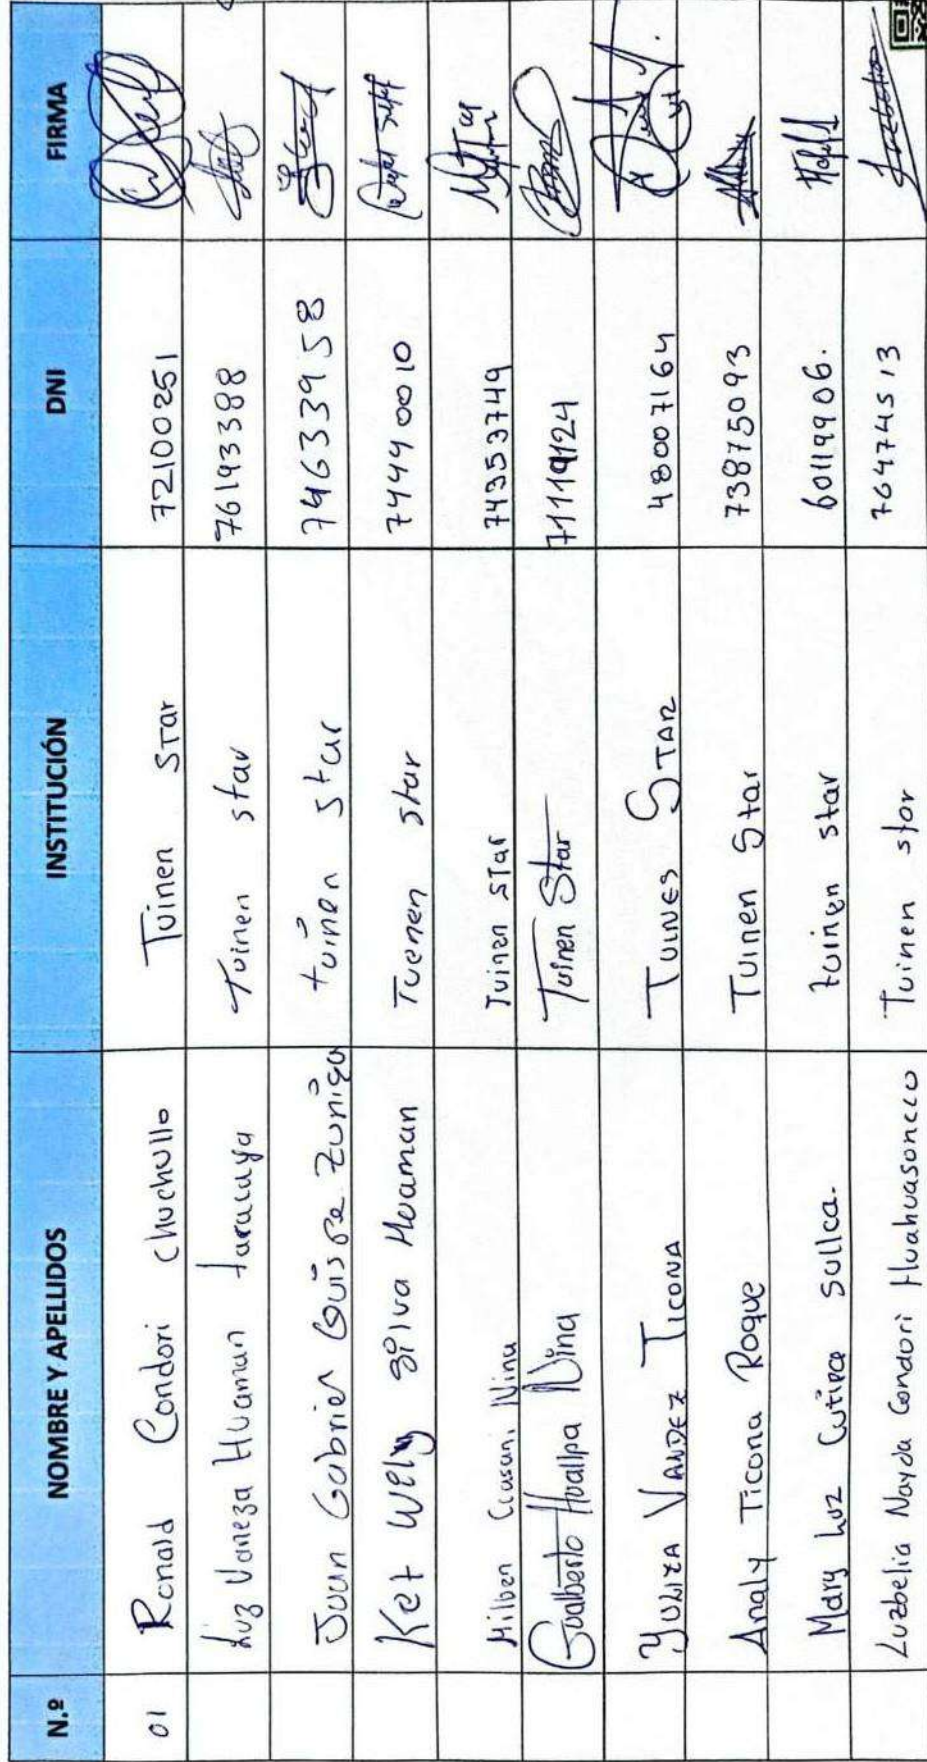 N.º NOMBRE Y APELLIDOS INSTITUCIÓN DNI FIRMA
01 Ronald Condori Chuchullo Tuinen Star 72100251
Luz Vaneza Huaman Taracaya Tuinen star 76193388
Juan Gabriel Quispe Zuniga tuinen star 74633958
Ket Wely Silva Huaman Tuenen star 74440010
Milben Ccasani Nina Tuinen Star 74353749
Gualberto Huallpa Nina Tuinen Star 71119124
Yuliza Vandez Ticona Tuines Star 48007164
Analy Ticona Roque Tuinen Star 73875093
Mary Luz Cutipa Sullca. tuinen star 60119906.
Luzbelia Nayda Condori Huahuasoncco Tuinen star 76474513